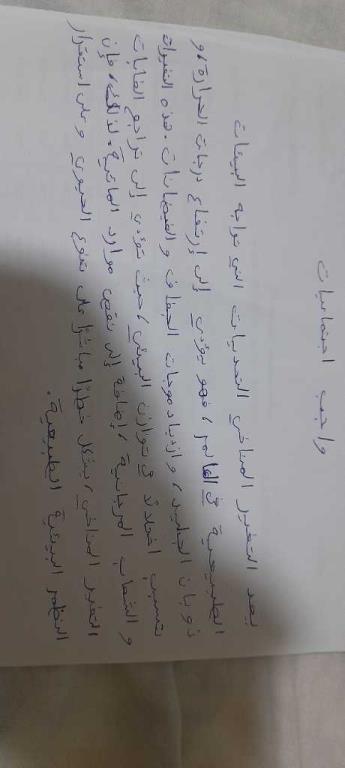 واجب اجتماعيات
يعد التغير المناخي التحديات التي تواجه البيئات
الطبيعية في العالم، فهو يؤدي إلى إرتفاع درجات الحرارة، و
ذوبان الجليد، وازدياد موجات الجفاف والفيضانات. هذه التغيرات
تسبب اختلالا في توازن البيئي، حيث تؤدي إلى تراجع الغابات
و الشعاب المرجانية، إضافة إلى نقص موارد المائية. لذلك، فإن
التغير المناخي، يشكل خطرا مباشرا على تنوع الحيوي وعلى استقرار
النظم البيئية الطبيعية.